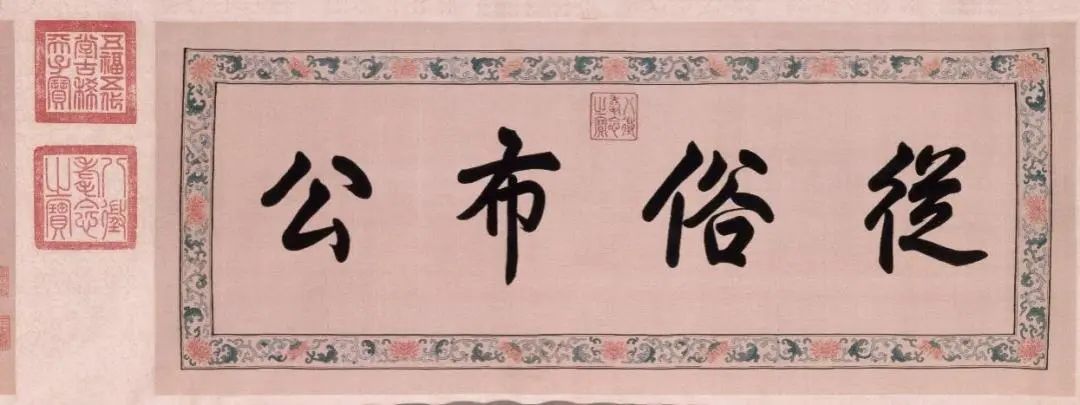 從俗布公
八徵耄念之寶
五福五代堂古稀天子寶
八徵耄念之寶